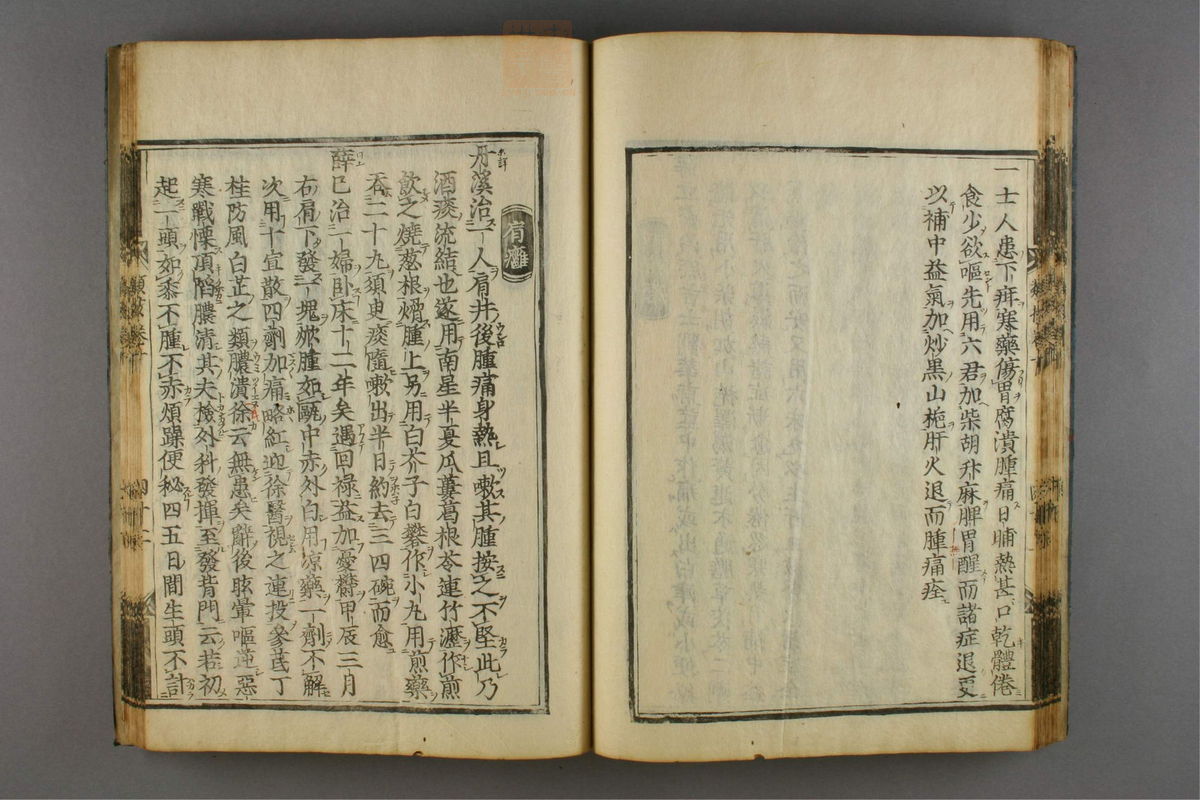 一士人患下疳寒藥傷胃腐潰腫痛日晡熱甚口乾體倦
食少欲嘔先用六君加柴胡升麻脾胃醒而諸症退又
以補中益氣加炒黑山梔肝火退而腫痛痊
肩癰
丹溪治一人肩井後腫痛身熱且嗽其腫按之不堅此乃
酒痰流結也遂用南星半夏瓜蔞葛根芩連竹瀝作煎
飲之燒葱根熨腫上另用白芥子白礬作小丸用煎藥
吞二十丸須臾痰隨嗽出半日約去三四碗而愈
薛已治一婦臥床十二年矣遇回祿益加憂鬱甲辰三月
右肩下發一塊焮腫如甌中赤外白用涼藥一劑不解
次用十宣散四劑加痛略紅迎徐醫視之連投參芪丁
桂防風白芷之類膿潰徐云無患矣辭後眩暈嘔逆惡
寒戰慄頂陷膿清其夫檢外科發揮至發背門云若初
起一頭如黍不腫不赤煩躁便秘四五日間生頭不計